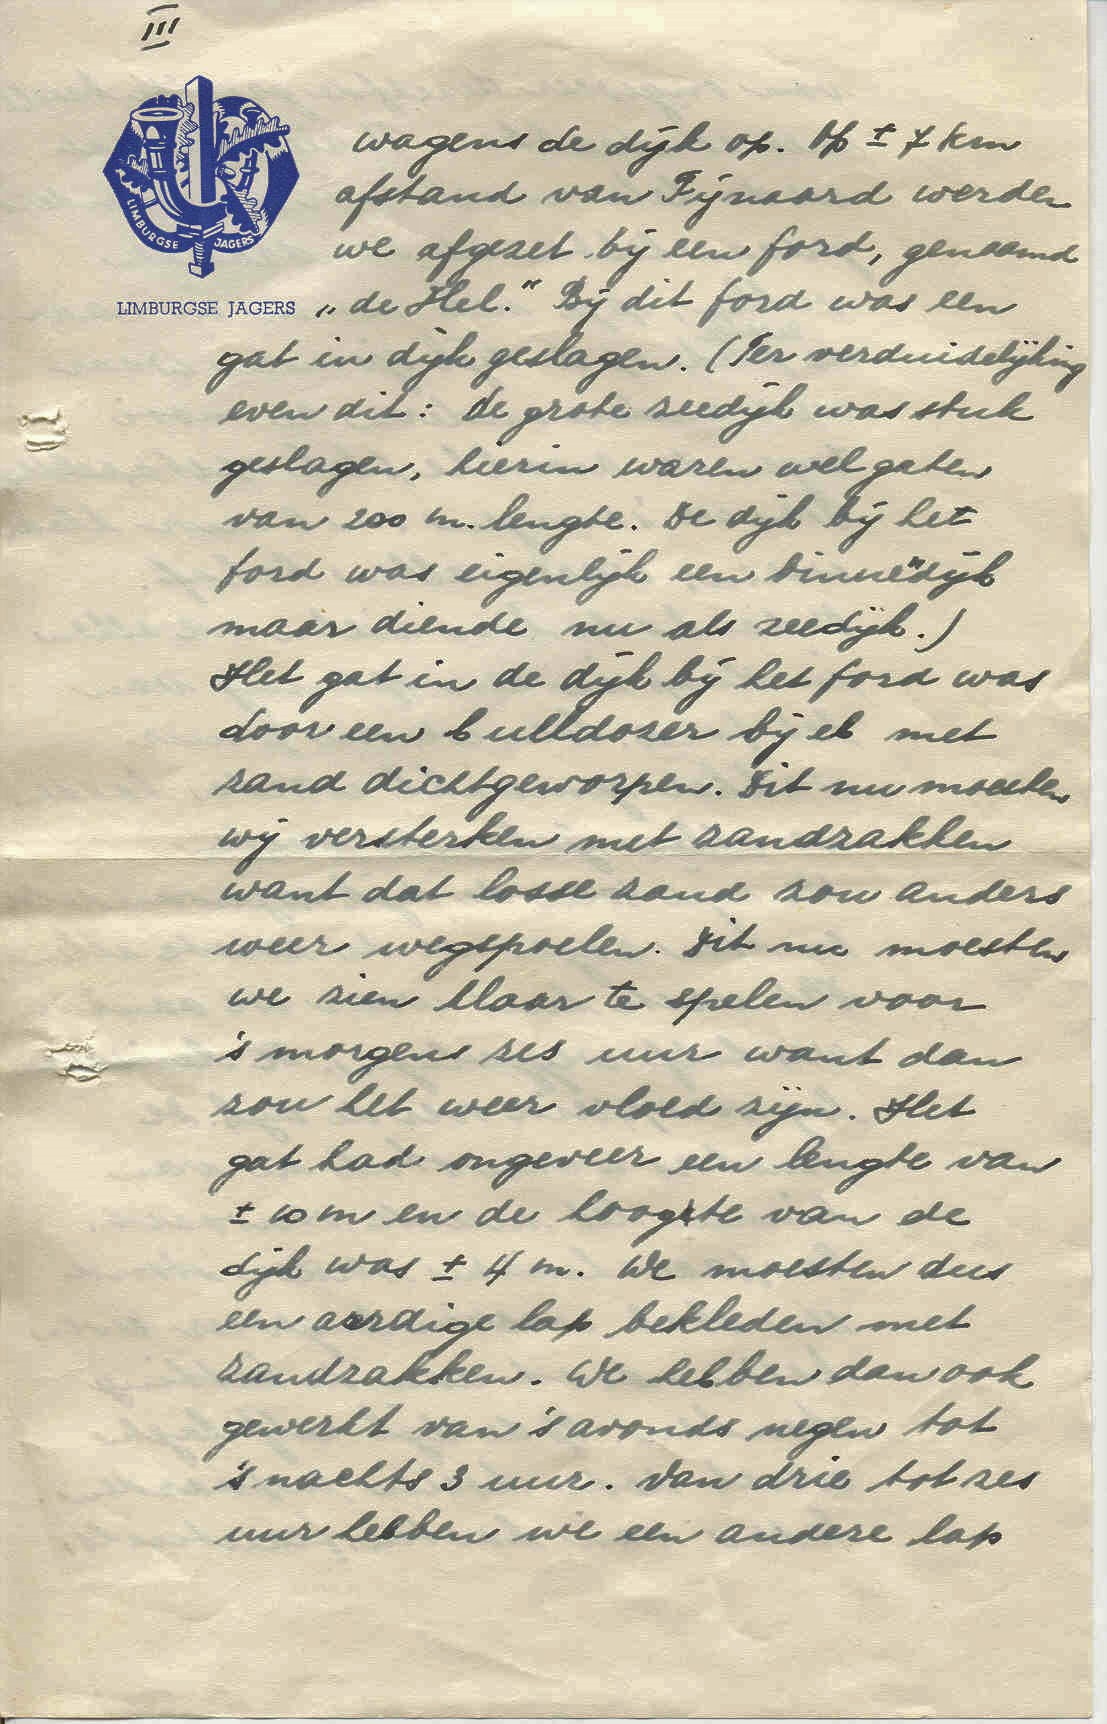 III
LIMBURGSE JAGERS
LIMBURGSE JAGERS
wagens de dijk op. Op ± 7 km
afstand van Fijnaard werden
we afgezet bij een ford, genaamd
„de Hel.” Bij dit ford was een
gat in dijk geslagen. (Ter verduidelijking
even dit: de grote zeedijk was stuk
geslagen, hierin waren wel gaten
van 200 m. lengte. De dijk bij het
ford was eigenlijk een binnedijk
maar diende nu als zeedijk.)
Het gat in de dijk bij het ford was
door een bulldozer bij eb met
zand dichtgeworpen. Dit nu moesten
wij versterken met zandzakken
want dat losse zand zou anders
weer wegspoelen. Dit nu moesten
we zien klaar te spelen voor
's morgens zes uur want dan
zou het weer vloed zijn. Het
gat had ongeveer een lengte van
± 10 m en de hoogte van de
dijk was ± 4 m. We moesten dus
een aardige lap bekleden met
zandzakken. We hebben dan ook
gewerkt van 's avonds negen tot
's nachts 3 uur. Van drie tot zes
uur hebben we een andere lap